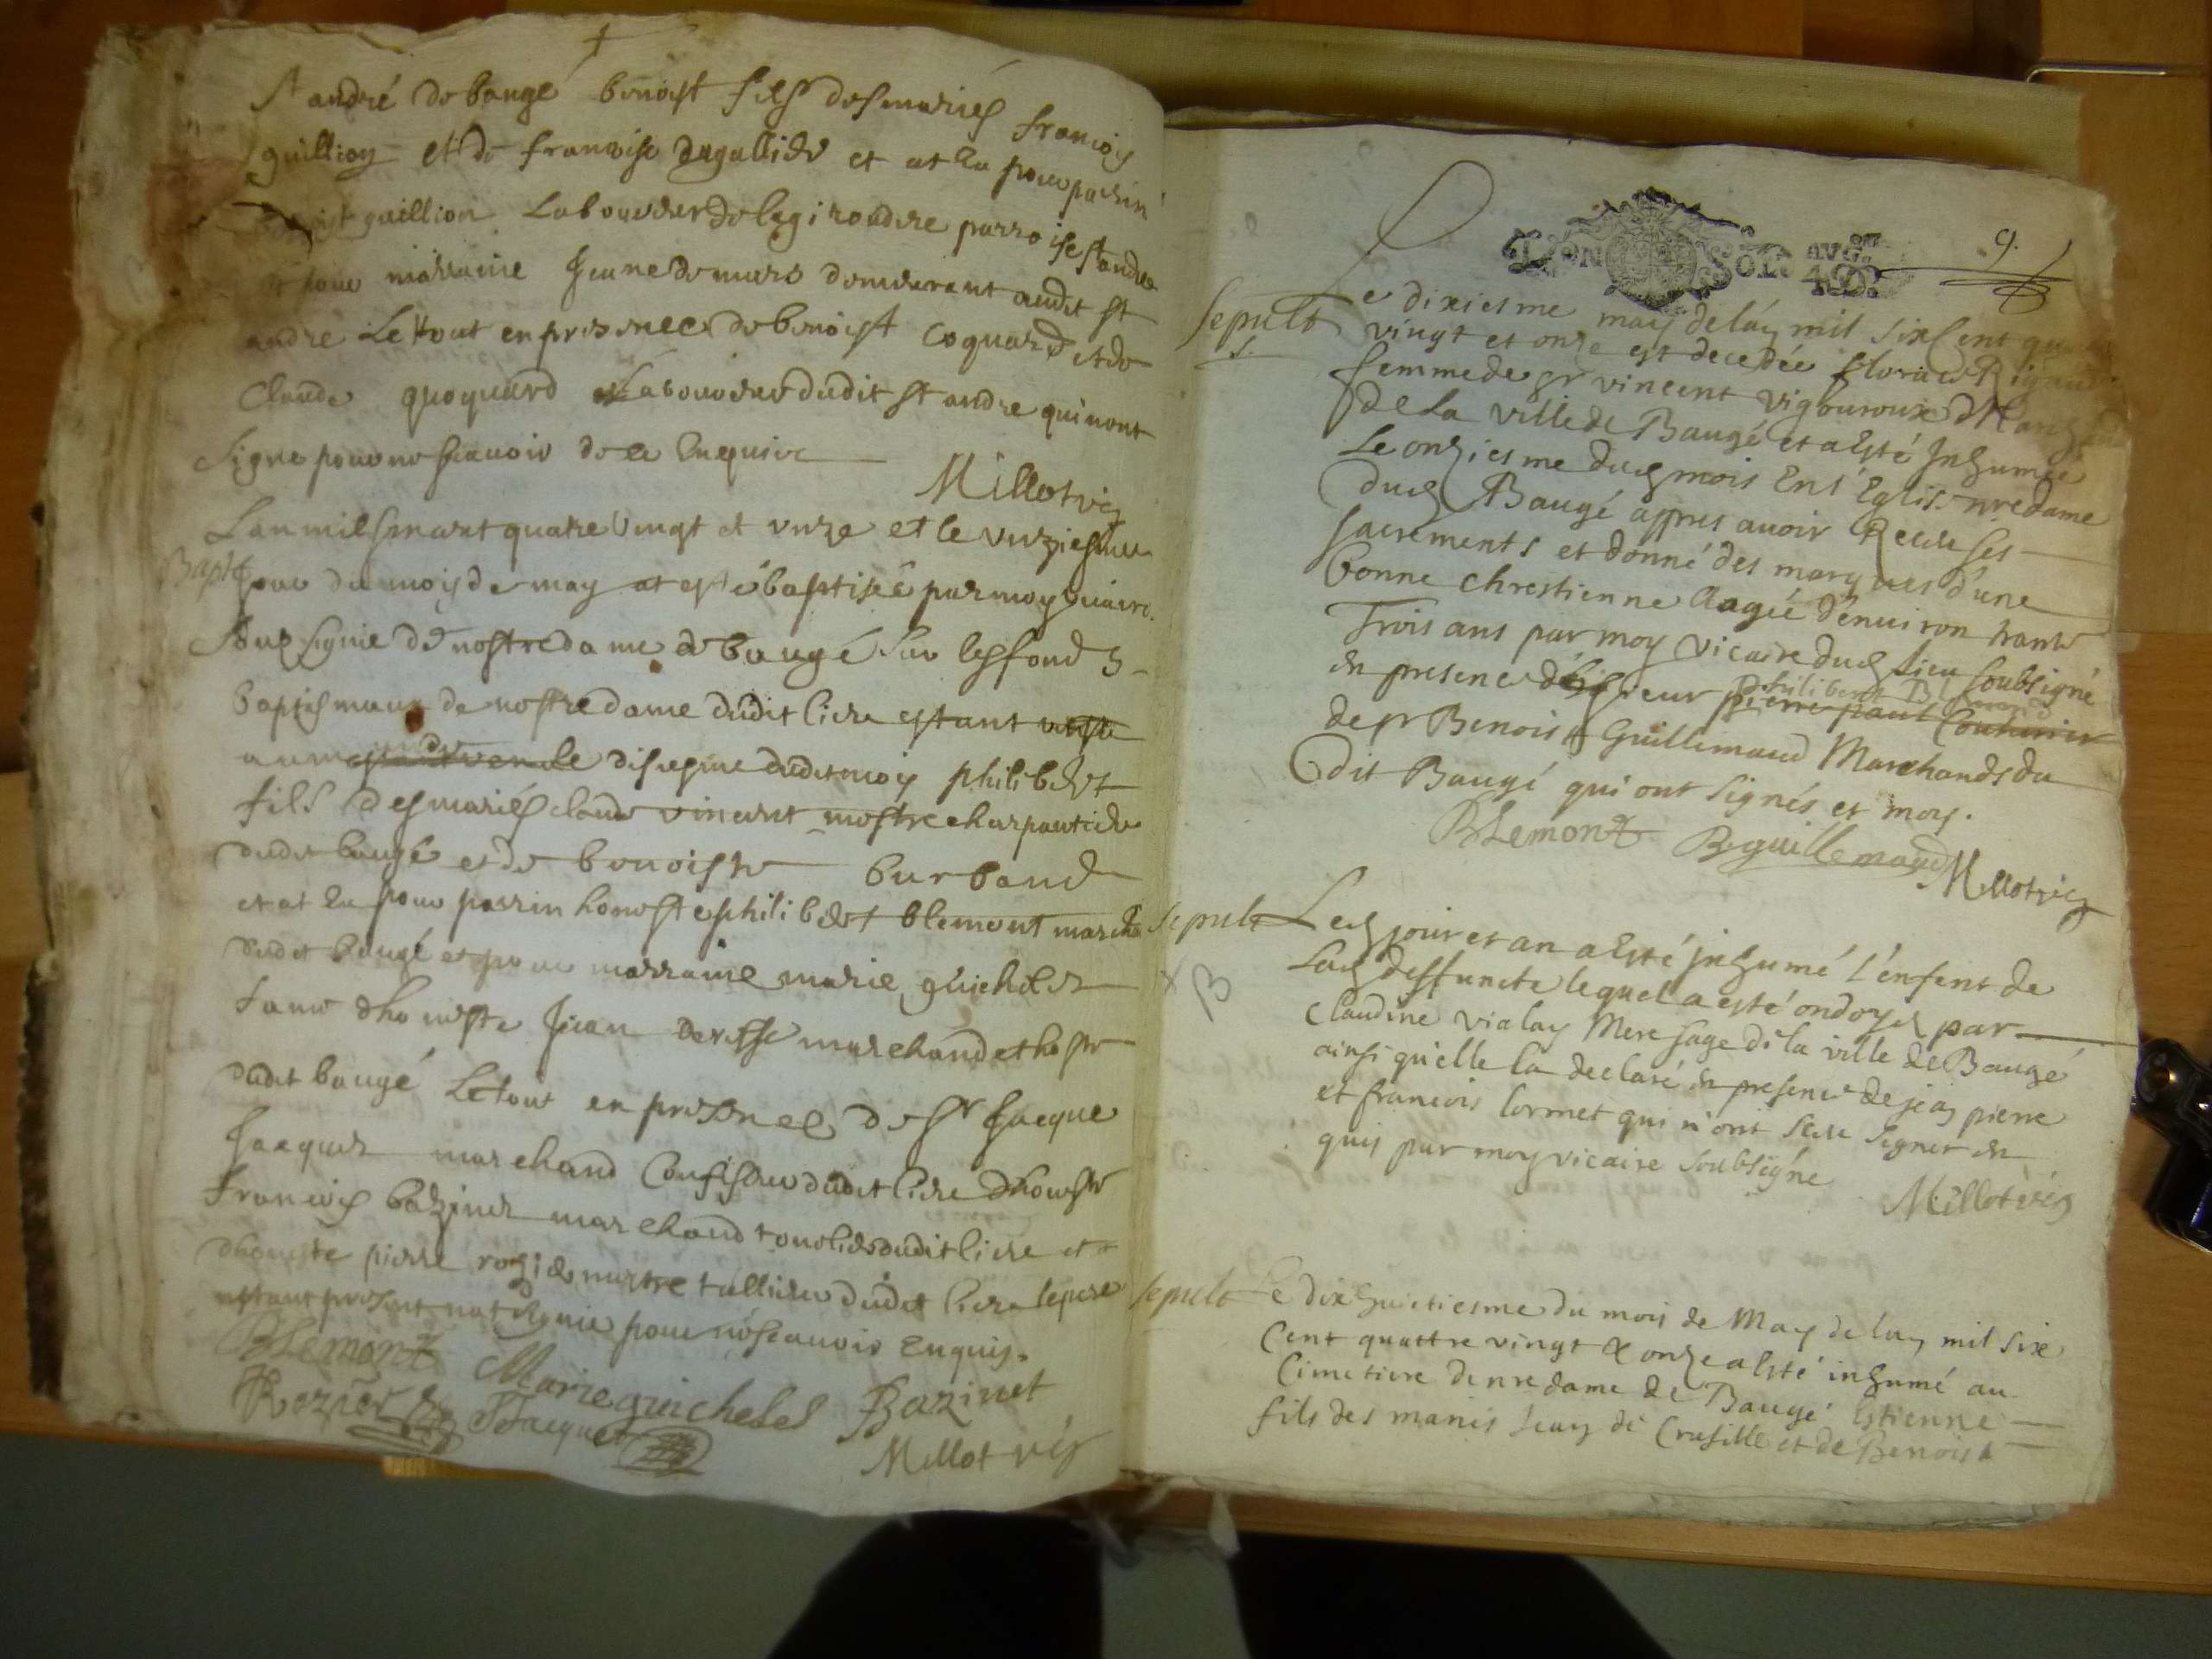 St andré de baugé benoist fils des mariés francois
guillion et de francoise dagallier et at eu pour parrin
guillion laboureur de la girondere parroise st andre
et pour marraine Jeanne de murs demeurant audit st
andre Le tout en presences de benoist coquard et de
Claude quoquard laboureur dudit st andre qui n'ont
signe pour ne scauoir de ce enquis
Millot vic
Lan mil six cent quatre vingt et unze et le unziesme
Bapt
jour du mois de may at esté baptisée par moy vicaire
soubsigné de nostre dame de baugé sur les fonds
baptismaux de nostre dame dudit lieu estant
dudit moy philibert
fils des mariés claude vincent mestre charpantier
dudit baugé et de benoiste burband
et at eu pour parrin honeste philibert blemont march
dudit baugé et pour marraine marie guichelet
fame dhoneste Jean marchand et hoste
dudit baugé Le tout en presences de sr Jacque
Jacquet marchand Confiseur dudit lieu dhoneste
francois bazinet marchand tonelier dudit lieu et
dhoneste pierre rozier mestre tallieur dudit lieu le pere
estant present n'at signé pour ne scauoir enquis.
BLemont Marie guichelet Bazinet
Rozier JJacquet
Millot vic
LION SOLS AVG.ON 4D.
9.
Sepult
s.
Le dixiesme may de lan mil six cent qu
vingt et onze est decedée floriae Rigaud
femme de sr vincent vigouroux March
de la ville de Baugé et a esté Inhumée
Le onziesme dud mois En l'Eglise nre dame
dud Baugé appres auoir Receu ses
sacrements et donné des marques d'une
bonne chrestienne Aagée d'enuiron trante
Trois ans par moy vicaire dud lieu soubsigné
philibert Blemond
en presence de sieur Pierre paul Couturier
de sr Benoist Guillemaud Marchands du
dit Baugé qui ont signés et moy.
BLemont B guillemaud Millot vic
Sepult
Led jour et an a esté inhumé l'enfent de
Lad deffuncte lequel a esté ondoyé par
B
Claudine vialay Mere sage de la ville de Baugé
ainsi quelle la declaré en presence de jean pierre
et francois lormet qui n'ont sceu signer en
quis par moy vicaire soubsigné
Millot vic
Sepult
Le dix huictiesme du mois de May de lan mil six
Cent quattre vingt & onze a esté inhumé au
Cimetiere de nre dame de Baugé Estienne
fils des mariés Jean de Crusille et de Benoist